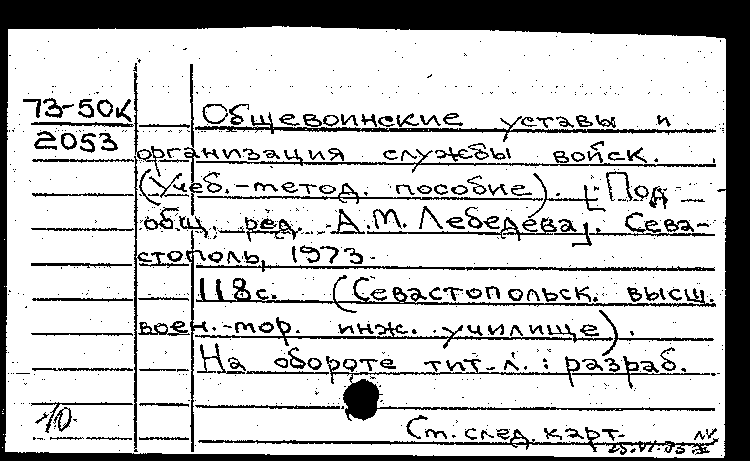 73-50к
2053
Общевоинские уставы и
организация службы войск.
(Учеб.-метод. пособие). [Под
общ. ред. А.М. Лебедева]. Сева-
стополь, 1973.
118с. (Севастопольск. высш.
воен.-мор. инж. училище).
На обороте тит. л.: разраб.
10
См. след. карт.